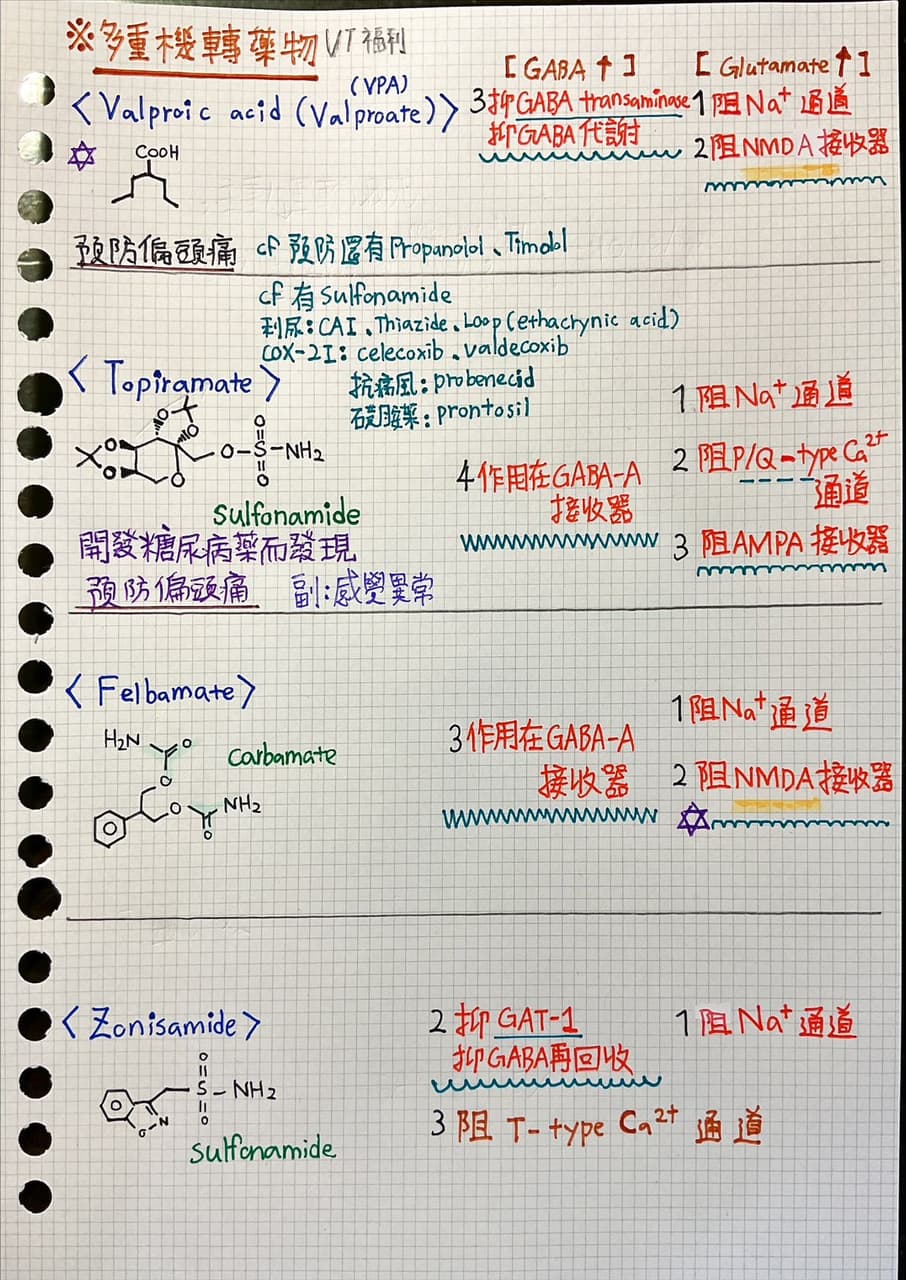 ※多重機轉藥物 VT福利
[GABA↑] [Glutamate↑]
<Valproic acid (Valproate)> (VPA)
3抑GABA transaminase
抑GABA代謝
1阻Na+通道
2阻NMDA接收器
COOH
預防偏頭痛 cf 預防還有Propanolol、Timolol
cf 有Sulfonamide
利尿:CAI、Thiazide、Loop(ethacrynic acid)
COX-2I: celecoxib、valdecoxib
抗痛風:probenecid
磺胺藥:prontosil
<Topiramate>
O O O O O O-S-NH2 O O
Sulfonamide
4作用在GABA-A
接收器
1阻Na+通道
2阻P/Q-type Ca2+
通道
3阻AMPA接收器
開發糖尿病藥而發現
預防偏頭痛 副:感覺異常
<Felbamate>
H2N O
O
O NH2
O
Carbamate
3作用在GABA-A
接收器
1阻Na+通道
2阻NMDA接收器
<Zonisamide>
2抑GAT-1
抑GABA再回收
1阻Na+通道
3阻T-type Ca2+通道
O
S-NH2
O
O-N
Sulfonamide